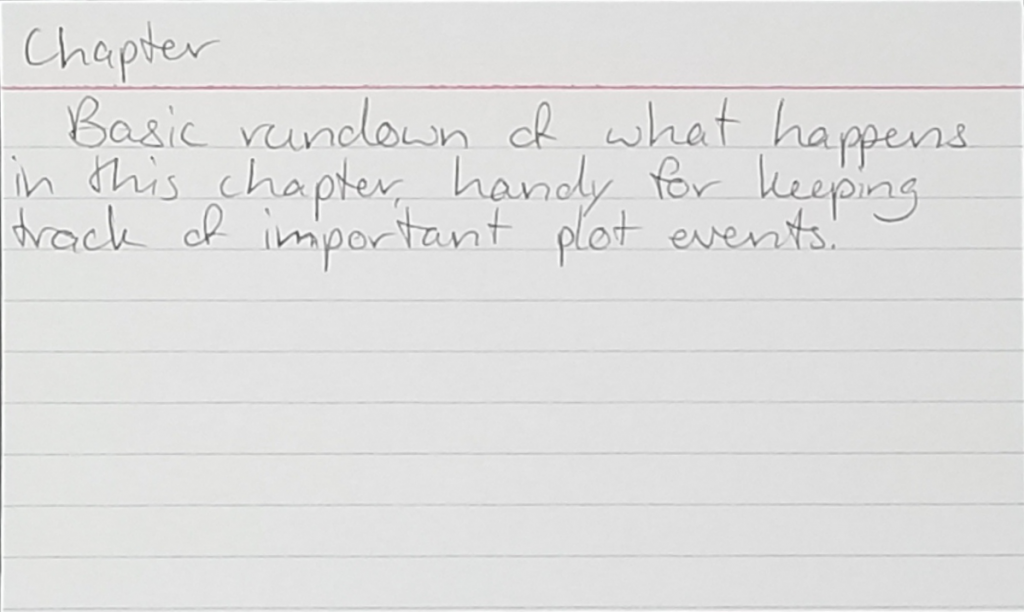 Chapter
Basic rundown of what happens
in this chapter, handy for keeping
track of important plot events.